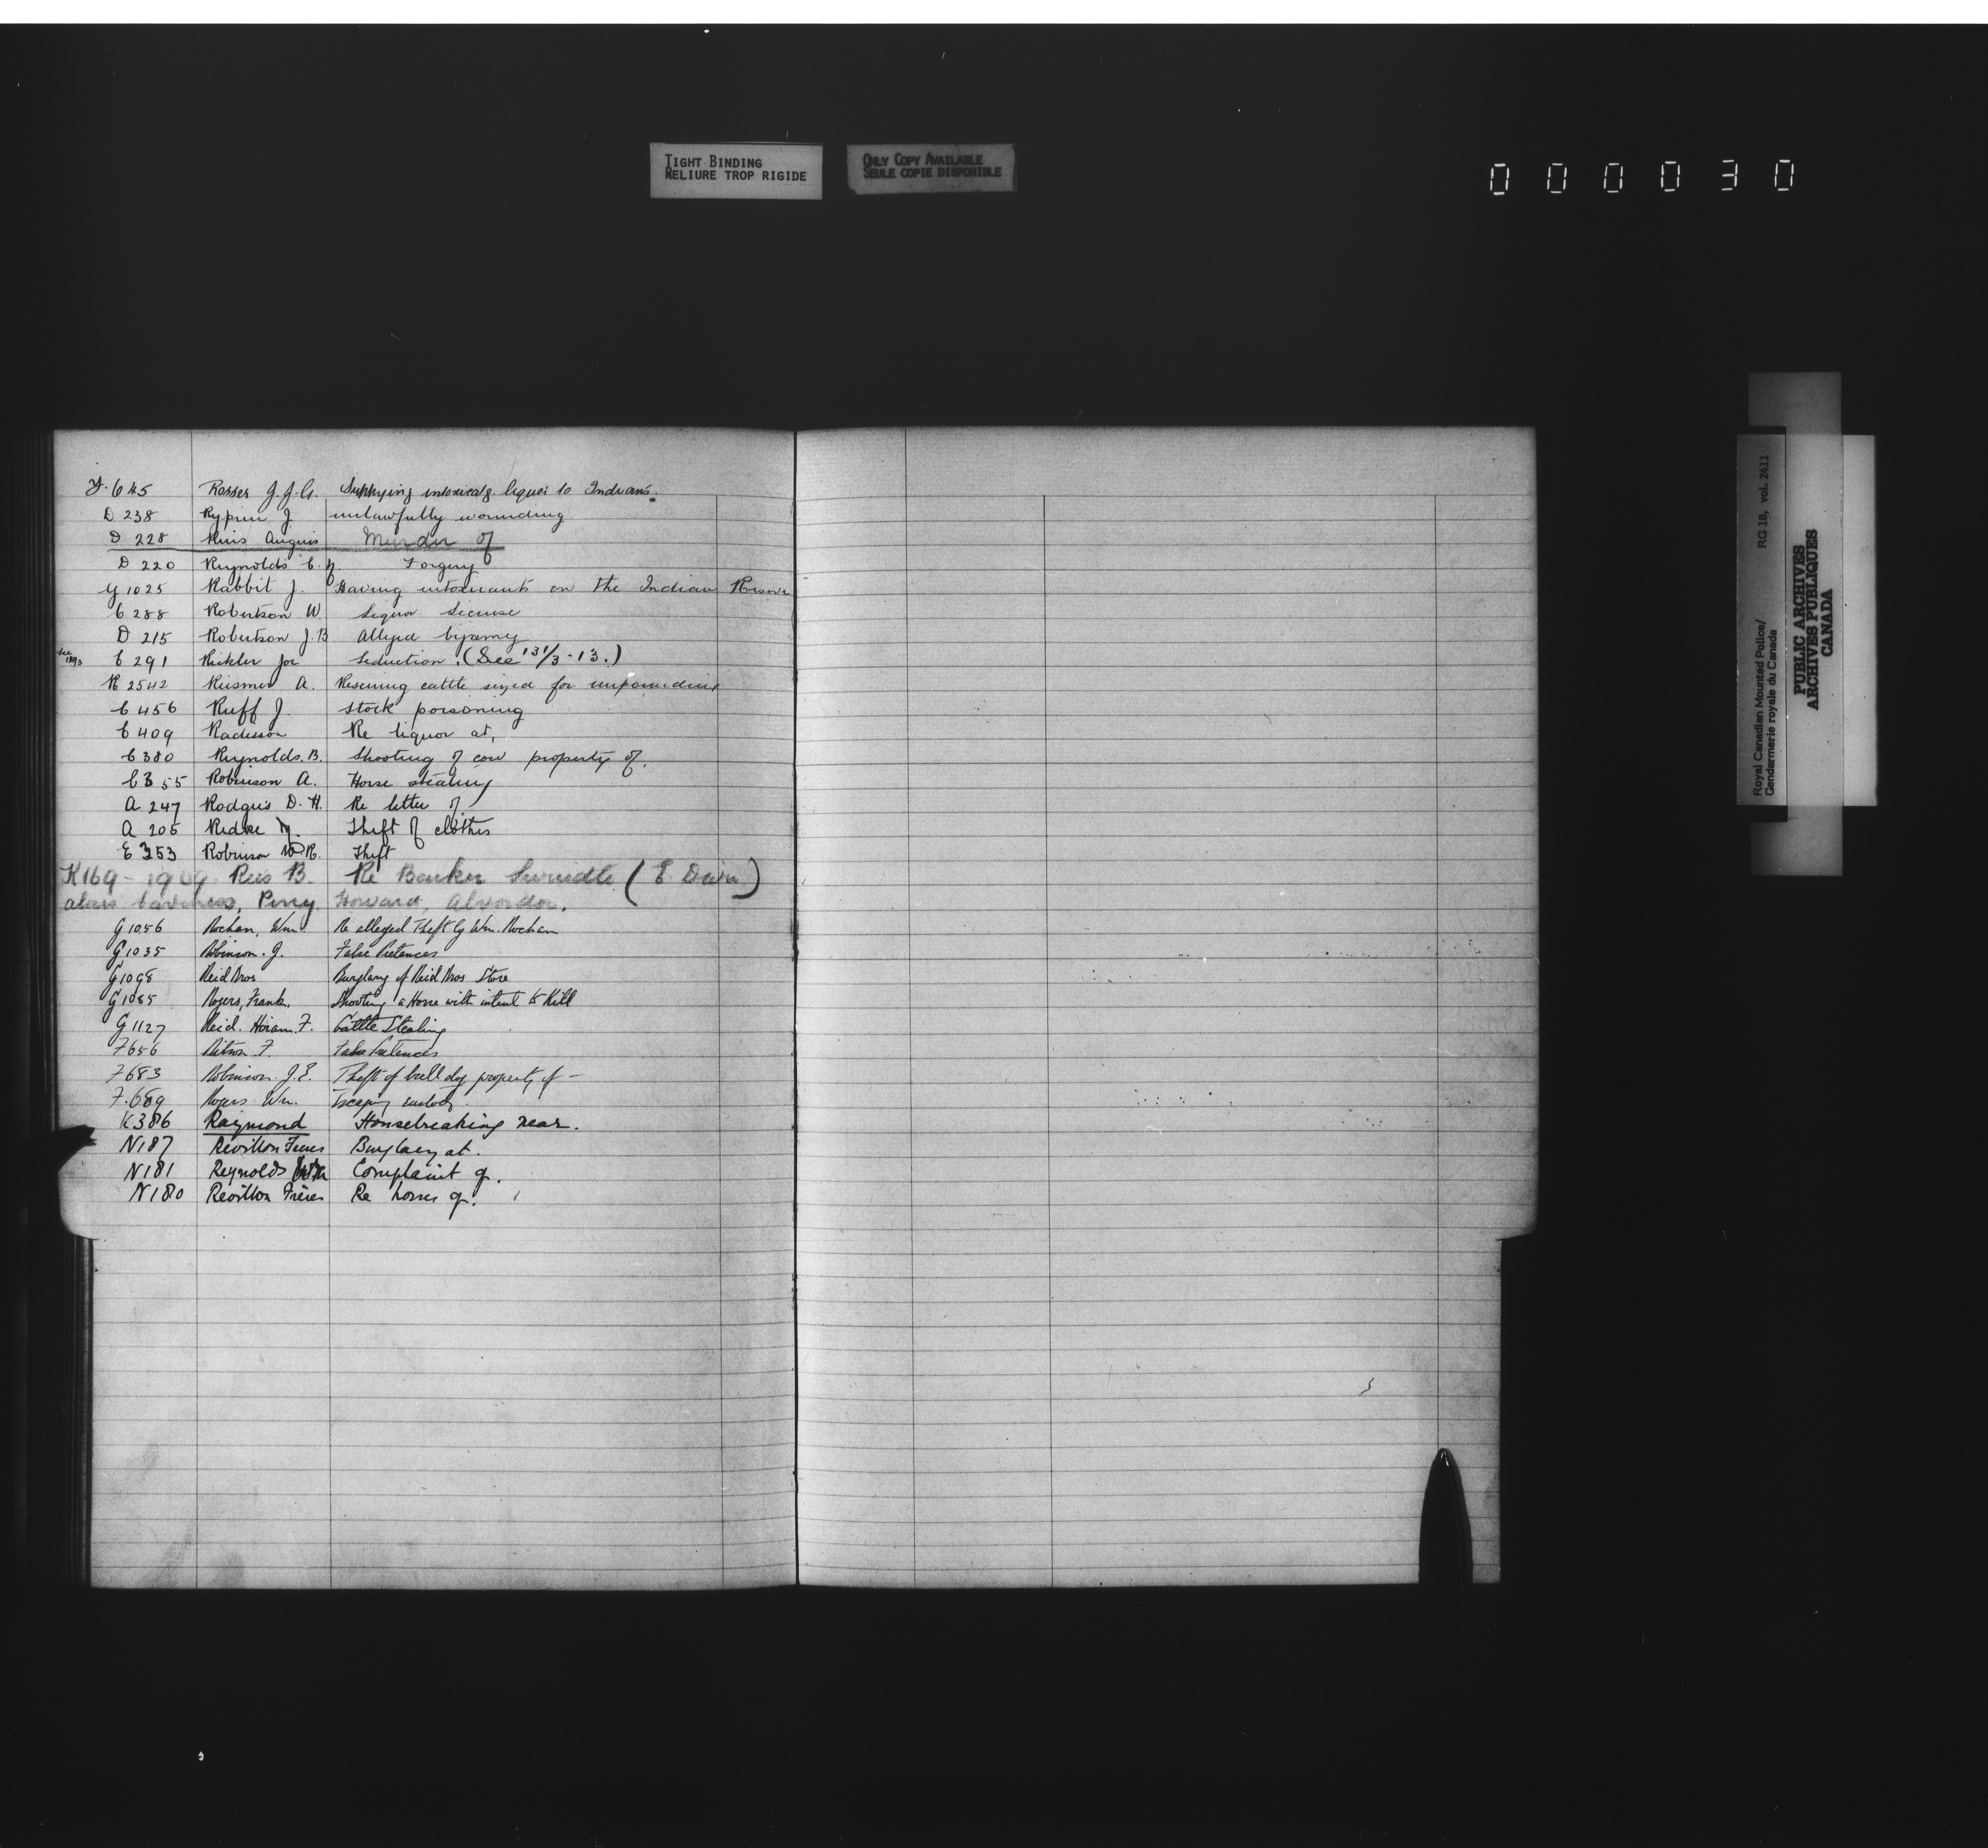 TIGHT BINDING
RELIURE TROP RIGIDE
ONLY COPY AVAILABLE
SEULE COPIE DISPONIBLE
000030
645 Rosser J.J.G. Supplying intoxicatg. liquor to Indians.
D 238 J. unlawfully wounding
D 228 Murder of
D 220 Reynolds Forgery
G 1025 Rabbit J. Having intoxicants on the Indian Reserve
C 288 Robertson W. Liquor License
D 215 Robertson J.B Alleged bigamy
See C 291 Rickler Joe Seduction. (See 131/3-13.)
R 2542 A. Rescuing cattle seized for impounding
C 456 Ruff J. Stock poisoning
C 409 Radisson Re liquor at,
C 380 Reynolds. B. Shooting of cow property of.
C 355 Robinson A. Horse stealing
A 247 Rodgers D. H. Re letter of
A 205 Theft of clothes
E 353 Robinson W R. Theft
K169-1909 Reis B. Re Banker Swindle (
alias Perry, Howard, Alvordon.
G1056 Rochan, Wm. Re alleged Theft by Wm. Rochan
G1035 Robinson. J. False Pretences
G1098 Reid Bros Burglary of Reid Bros Store
G1085 Rogers, Frank. Shooting a Horse with intent to Kill
G1127 Reid. Hiram. F. Cattle Stealing
F656 F. False Pretences
F683 Robinson. J.E. Theft of bull dog property of -
F.689 Rogers Wm. Escaping custody.
K386 Raymond Housebreaking near.
N187 Revillon Freres Burglary at.
N181 Reynolds Complaint of.
N180 Revillon Frères Re horses of.
Royal Canadian Mounted Police/ RG 18, vol. 2411
Gendarmerie royale du Canada
PUBLIC ARCHIVES
ARCHIVES PUBLIQUES
CANADA